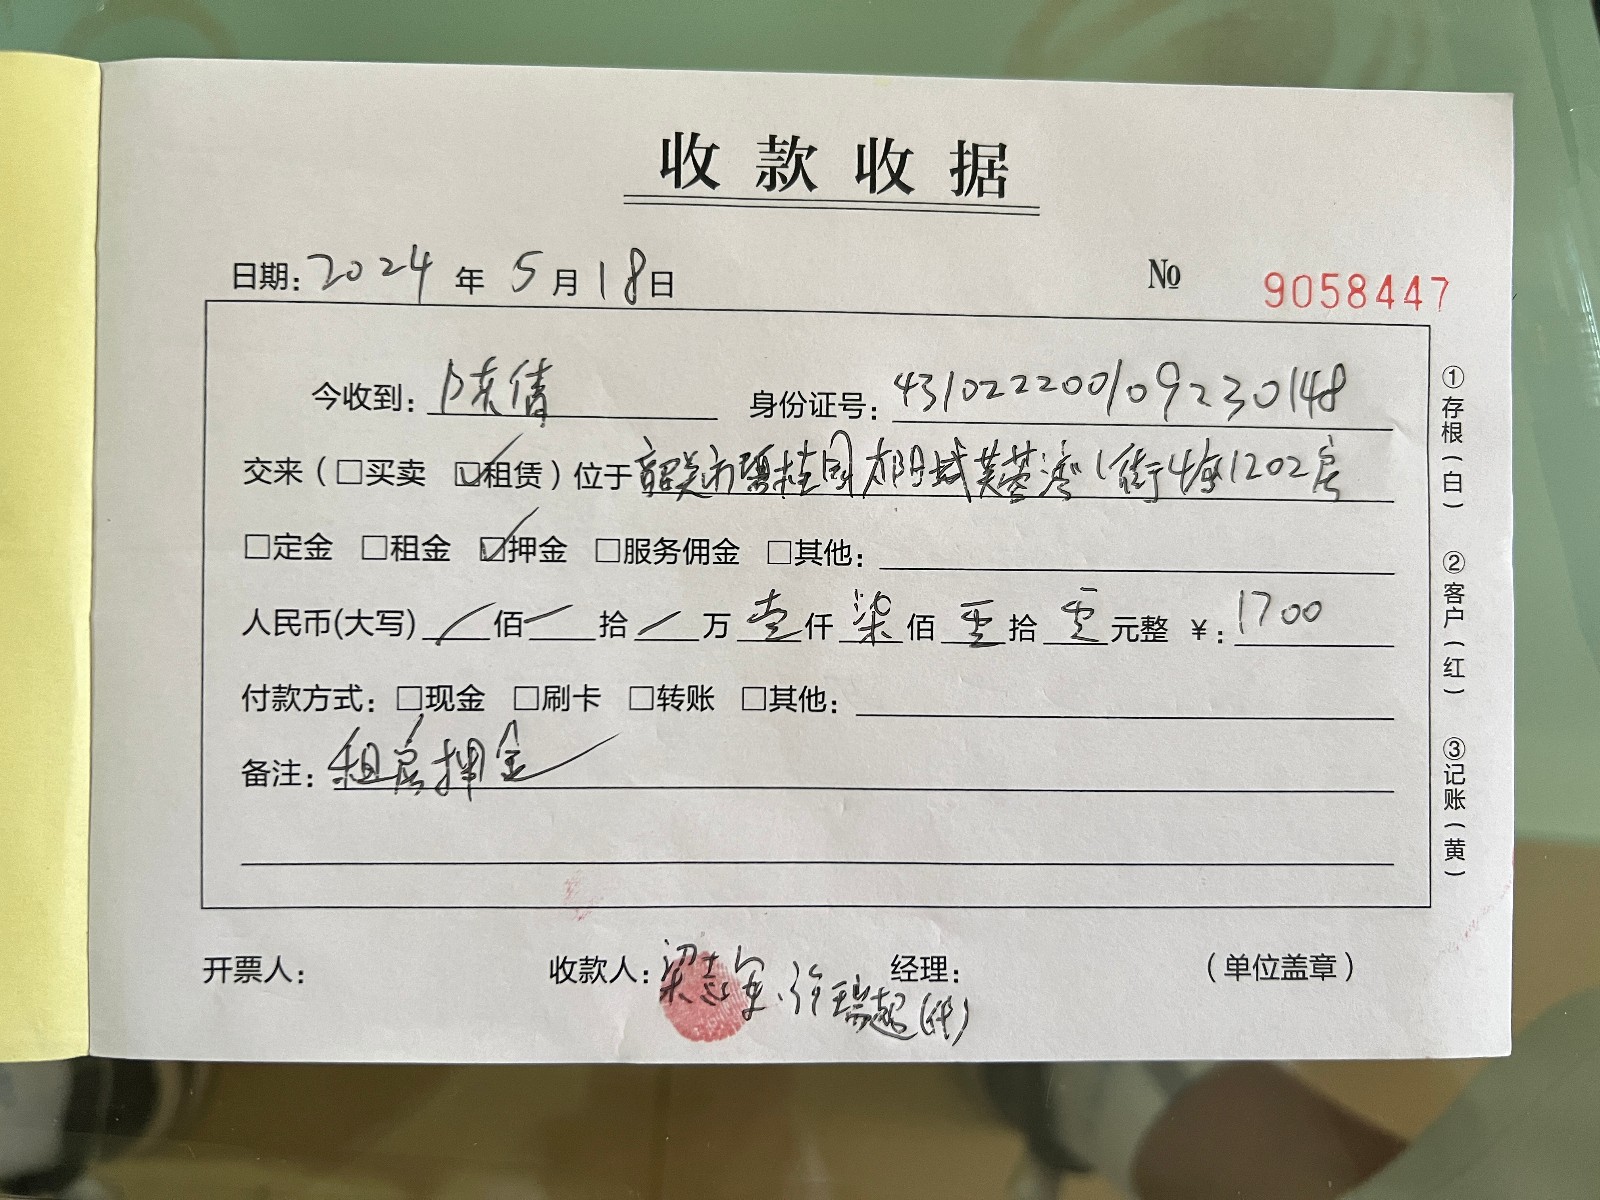 收款收据
日期: 2024 年 5 月 18 日 № 9058447
今收到: 陈倩 身份证号: 431022200109230148
交来 (□买卖 ☑租赁) 位于 韶关市碧桂园太阳城芙蓉湾1街4栋1202房
□定金 □租金 ☑押金 □服务佣金 □其他:
人民币(大写) / 佰 / 拾 / 万 壹 仟 柒 佰 零 拾 零 元整 ¥: 1700
付款方式: □现金 □刷卡 □转账 □其他:
备注: 租房押金
开票人: 收款人: 梁志军、徐瑞超(代) 经理: (单位盖章)
①存根(白) ②客户(红) ③记账(黄)